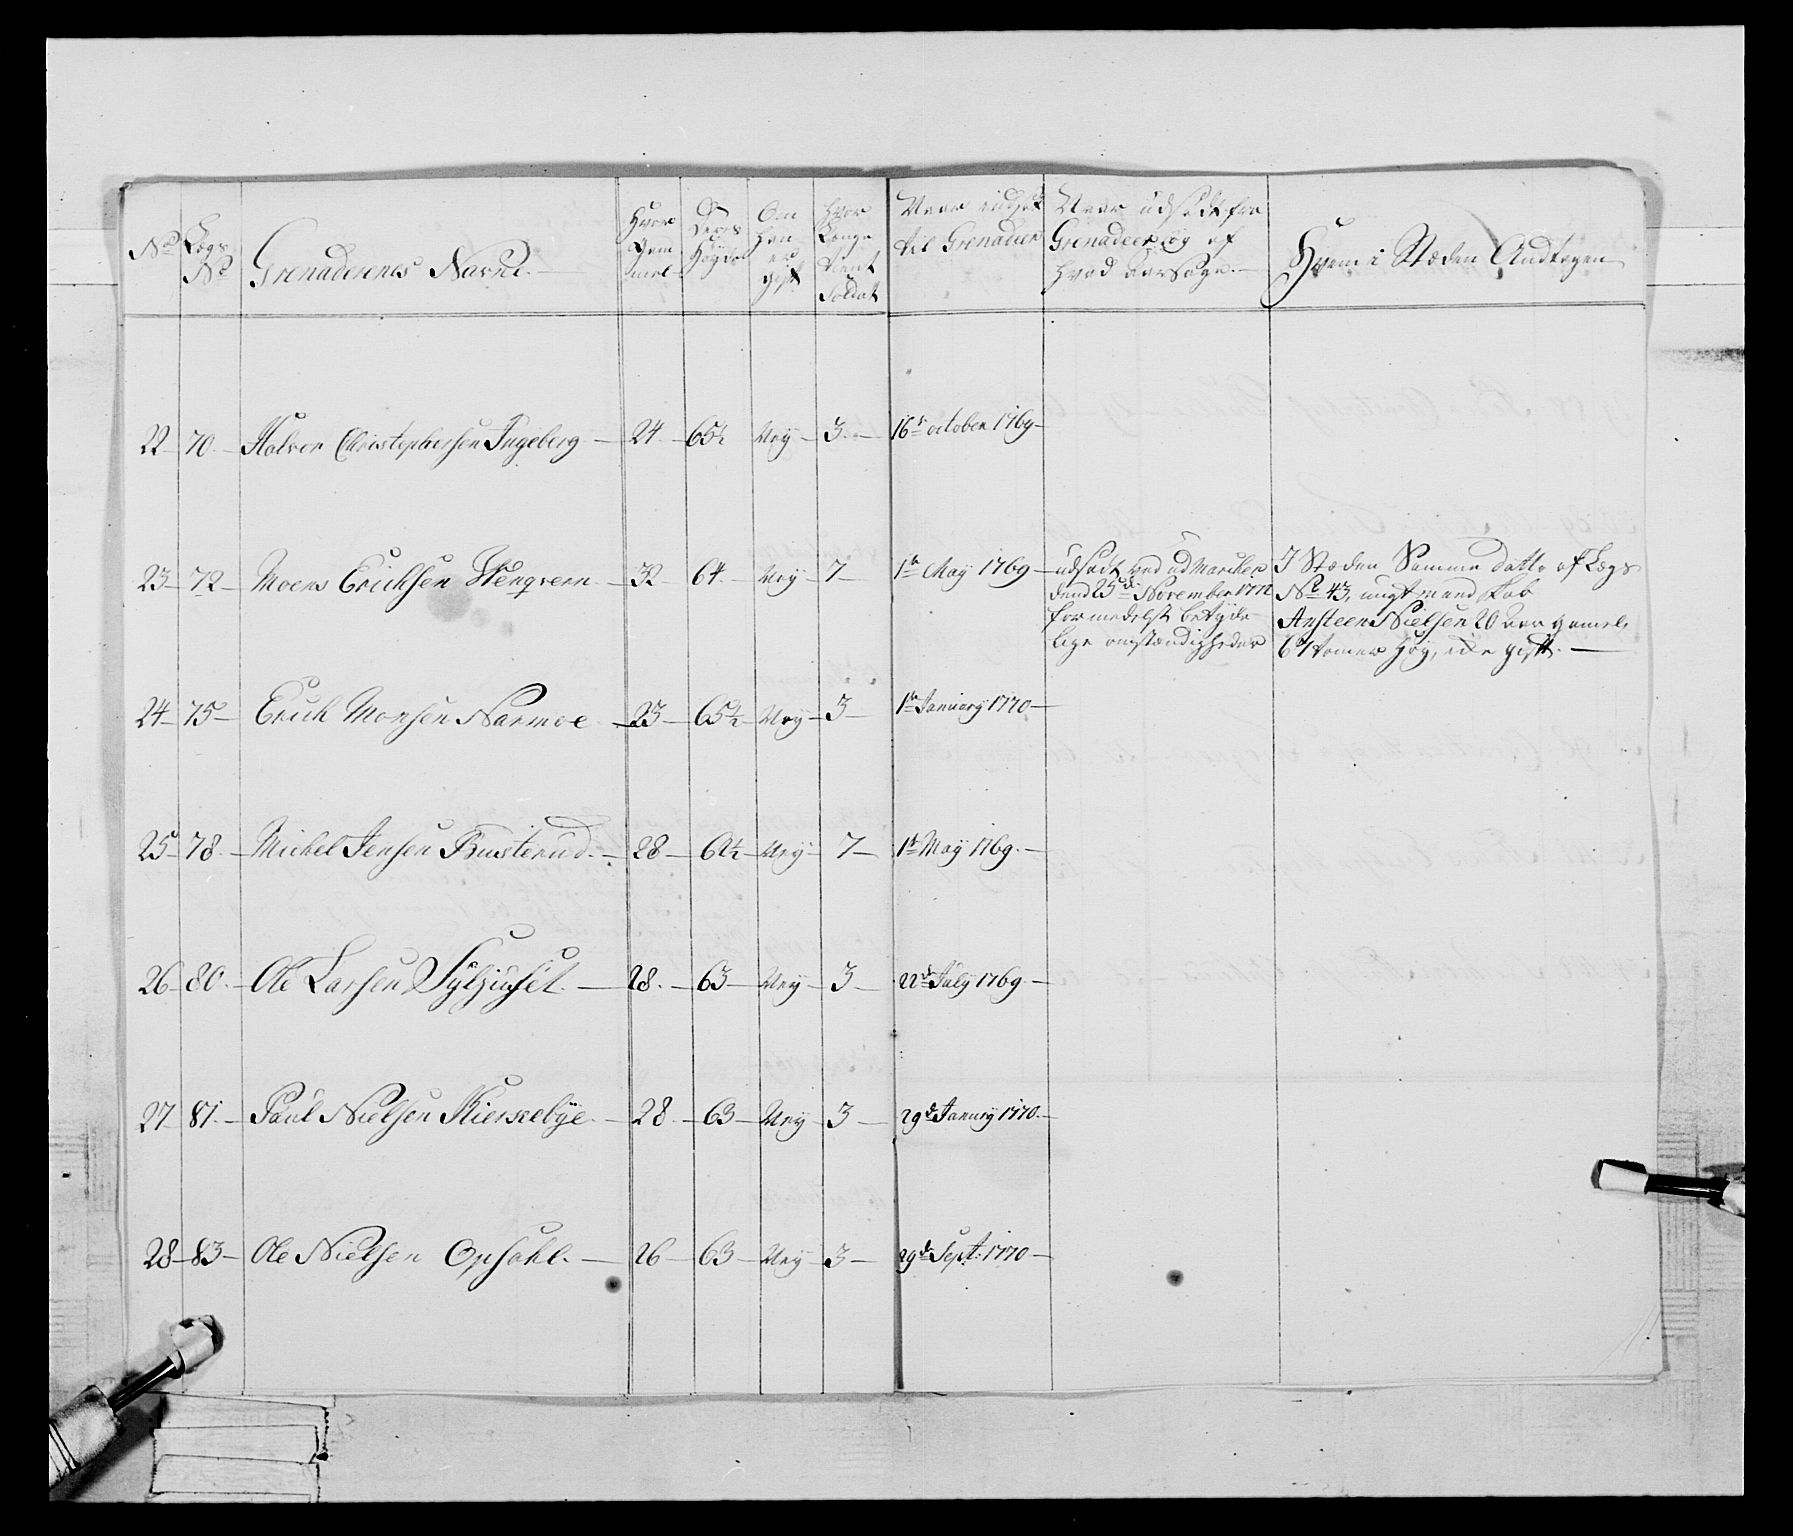 No
Lægs No
Grenaderenes Navne.
Hvor Gam mel
Deres Høyde
Om han er gift
Hvor Længe tient Soldat
Naar indsat til Grenadeer
Naar udsadt fra Grenadeer og af hvad Aarsage.
Hvem i Stæden Andtagen
22 70. Halvor Christophersen Ingeberg 24 65½ Ney 3. 16de october 1769
23 72 Moens Erichsen Stenqvern 32 64. Ney 7 1te May 1769 udsadt ved ud Marchen dend 25de November 1772 formedelst betyde lige omstændigheder
I Stæden Samme datto af Lægs No 43, ungt mandskab Ansteen Nielsen 20 aar gamel, 61 tomer høy, icke gift.
24 75 Erich Monsen Narmoe 23 65½ Ney 3 1te January 1770
25 78. Michel Jensen Busterud. 28 62½ Ney 7 1te May 1769.
26 80. Ole Larsen Syljuset. 28. 63 Ney 3 22de July 1769
27 81. Paul Nielsen Kierssebye. 28. 63 Ney 3 29de Janury 1770.
28 83 Ole Nielsen Opsahl. 26 63 Ney 3 29de Sept: 1770